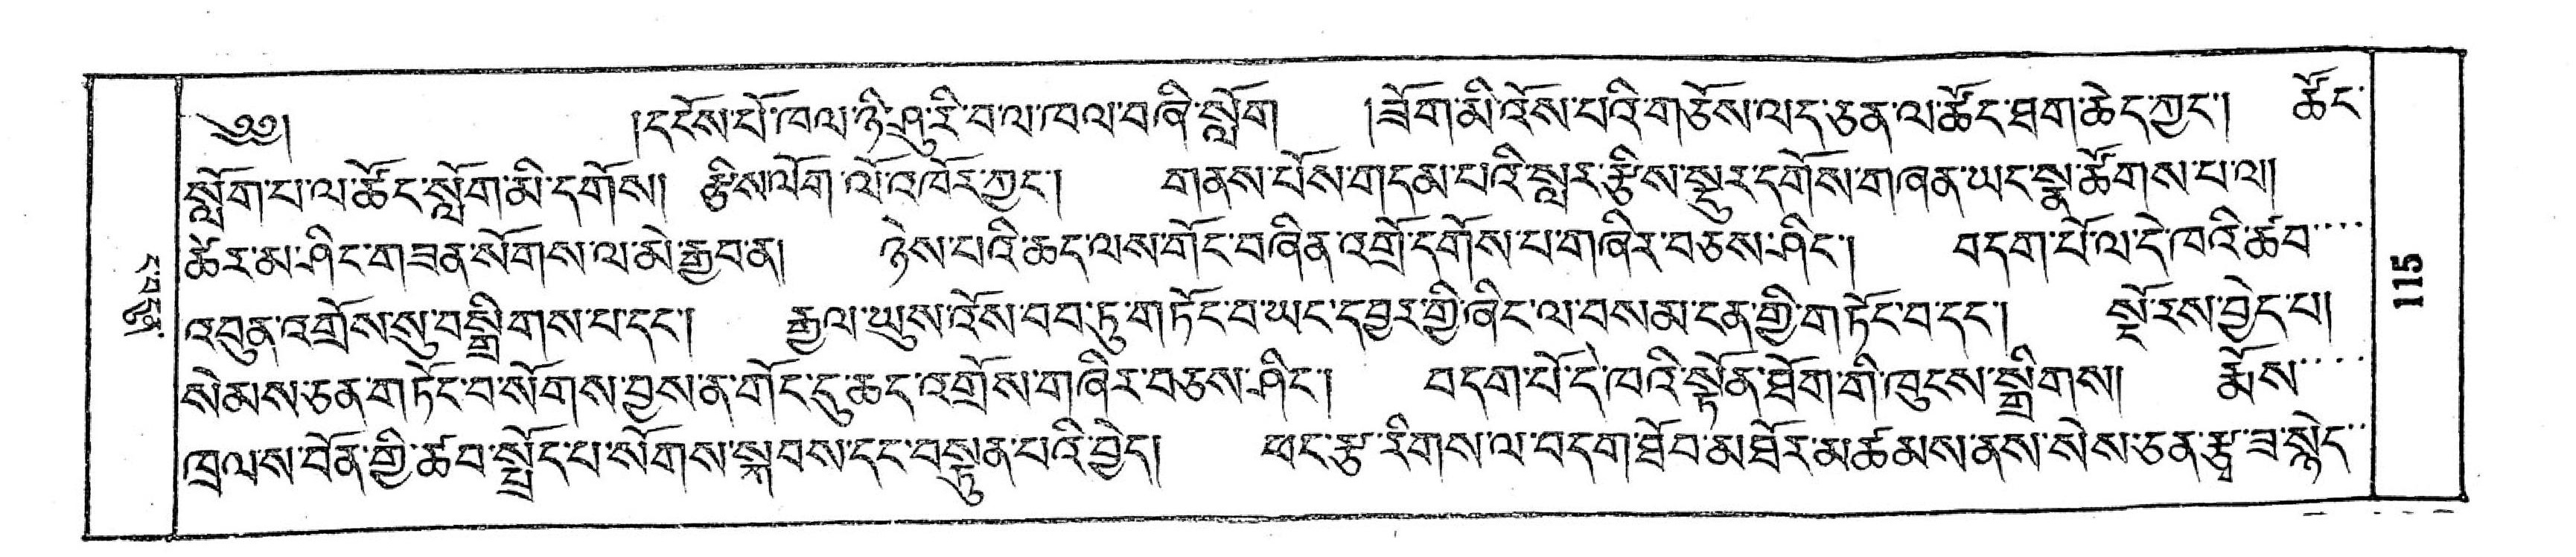 ༄༅། །དངོས་པོ་ཁལ་ཉི་ཤུ་རི་བ་ལ་ཁལ་བཞི་སློག །ཟོག་མི་འོས་པའི་གཅོས་ལད་ཅན་ལ་ཚོང་ཐག་ཆེད་ཀྱང་། ཚོང་
སློག་པ་ལ་ཚོང་སློག་མི་དགོས། རྩིས་ལོག་ལོ་འཁོར་ཀྱང་། གནས་པོས་གདམ་པའི་སླར་རྩིས་སྔར་དགོས་གཞན་ཡང་སྣ་ཚོགས་པ་ལ།
ཚེར་མ་ཤིང་གཟན་སོགས་ལ་མེ་རྒྱབ་ན། ཉེས་པའི་ཆད་ལས་གོང་བཞིན་འགྲོ་དགོས་པ་གཞིར་བཅས་ཤིང་། བདག་པོ་ལ་དེ་ཁའི་ཚབ
འབུན་འགྲོས་སུ་བསྒྲིགས་པ་དང་། རྒྱལ་ཡུས་འོས་བབ་ཏུ་གཏོང་བ་ཡང་དབྱར་གྱི་ཞིང་ལ་བསམ་ངན་གྱི་གཏོང་བ་དང་། སྔོ་རས་བྱེད་པ།
སེམས་ཅན་གཏོང་བ་སོགས་བྱས་ན་གོང་དུ་ཆད་འགྲོས་གཞིར་བཅས་ཤིང་། བདག་པོ་དེ་ཁའི་སྟོན་ཐོག་གི་ཁུངས་སྒྲིགས། རྨོས
ཁྲལ་ས་བོན་གྱི་ཚབ་སྤྲོད་པ་སོགས་སྐབས་དང་བསྟུན་པའི་བྱེད། ཕང་རྩ་རིགས་ལ་བདག་ཐོབ་མ་ཐོར་མཚམས་ནས་སེས་ཅན་རྩྭ་ཟ་སྙེད
115